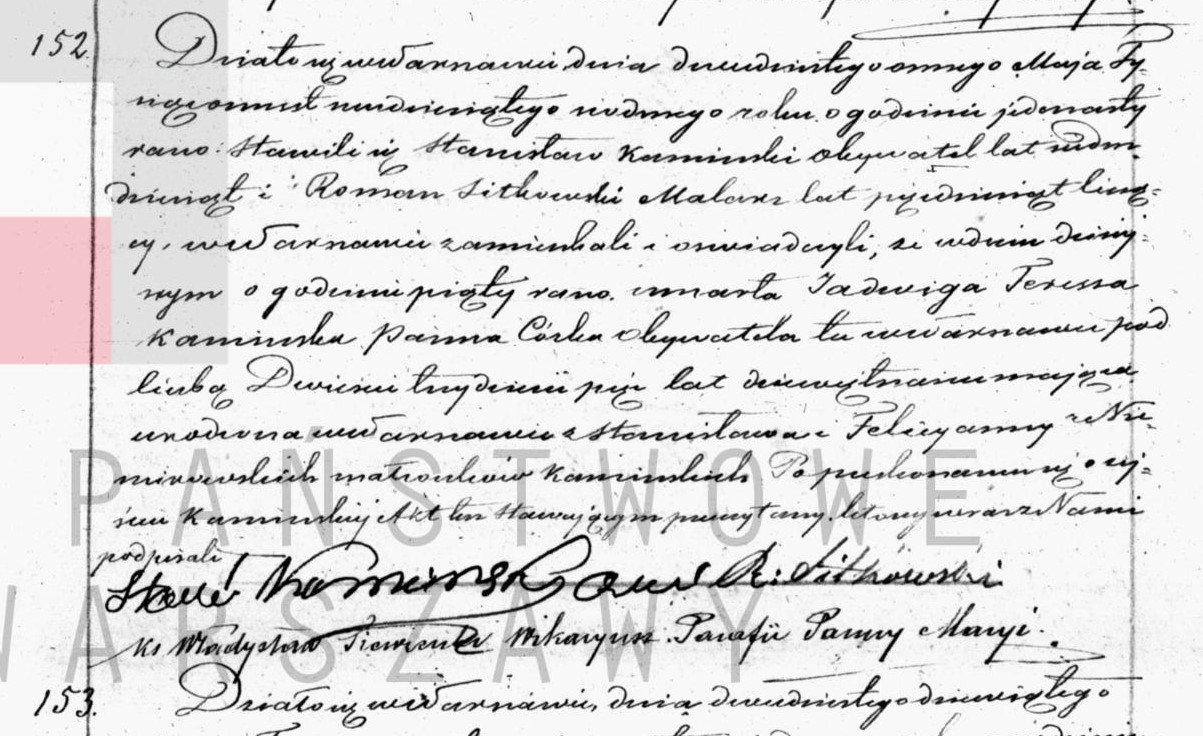 152.
Działo się w Warszawie, dnia dwudziestego osmego Maja Ty-
siąc osmset siedmdziesiątego siodmego roku o godzinie jedenastej
rano. Stawili się Stanisław Kaminski Obywatel lat siedm-
dziesiąt i Roman Sitkowski Malarz lat pięćdziesiąt liczą-
cy, w Warszawie zamieszkali i oswiadczyli, że w dniu dzisiej-
szym o godzinie piątej rano umarła Jadwiga Teressa
Kaminska Panna Córka Obywatela tu w Warszawie pod
liczbą Dwieście trzydzieści pięć lat dziewiętnaście mająca
urodzona w Warszawie z Stanisława i Felicyanny z Nie-
mirowskich małżonków Kaminskich Po przekonaniu się o zej-
ściu Kaminskiej Akt ten stawającym przeczytany, którzy wraz z Nami
podpisali
Kaminski R: Sitkowski
Ks Władysław Wikaryusz Parafii Panny Maryi.
153.
Działo się w Warszawie, dnia dwudziestego dziewiątego
PAŃSTWOWE
WARSZAWY